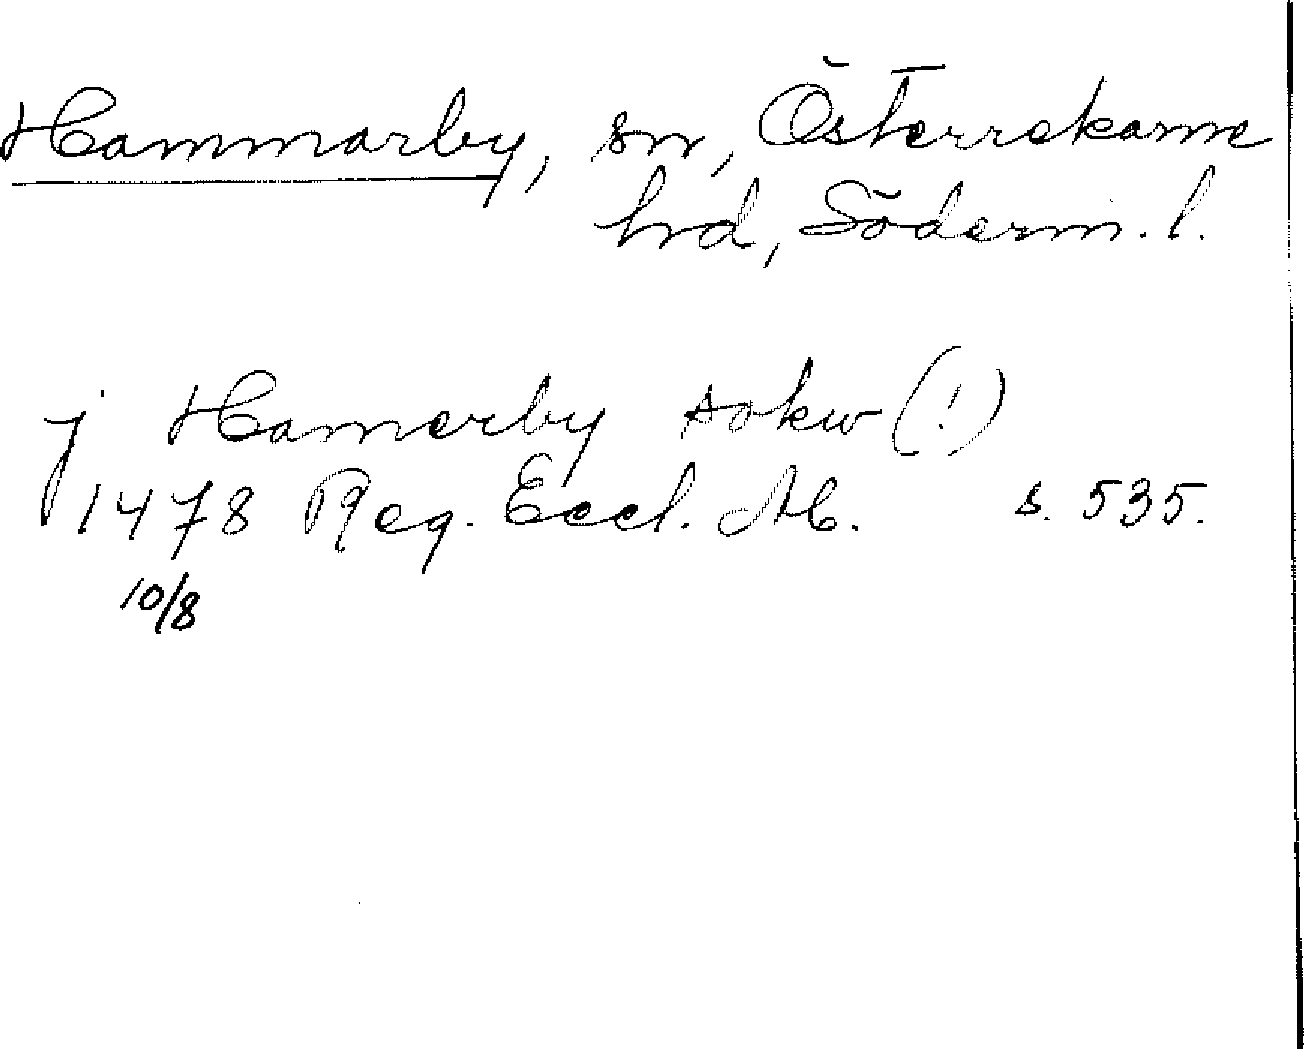 Hammarby, sn, Österrekarne
hrd, Söderm. l.
j Hamerby sokw (!)
1478 Reg. Eccl. Ab. s. 535.
10/8